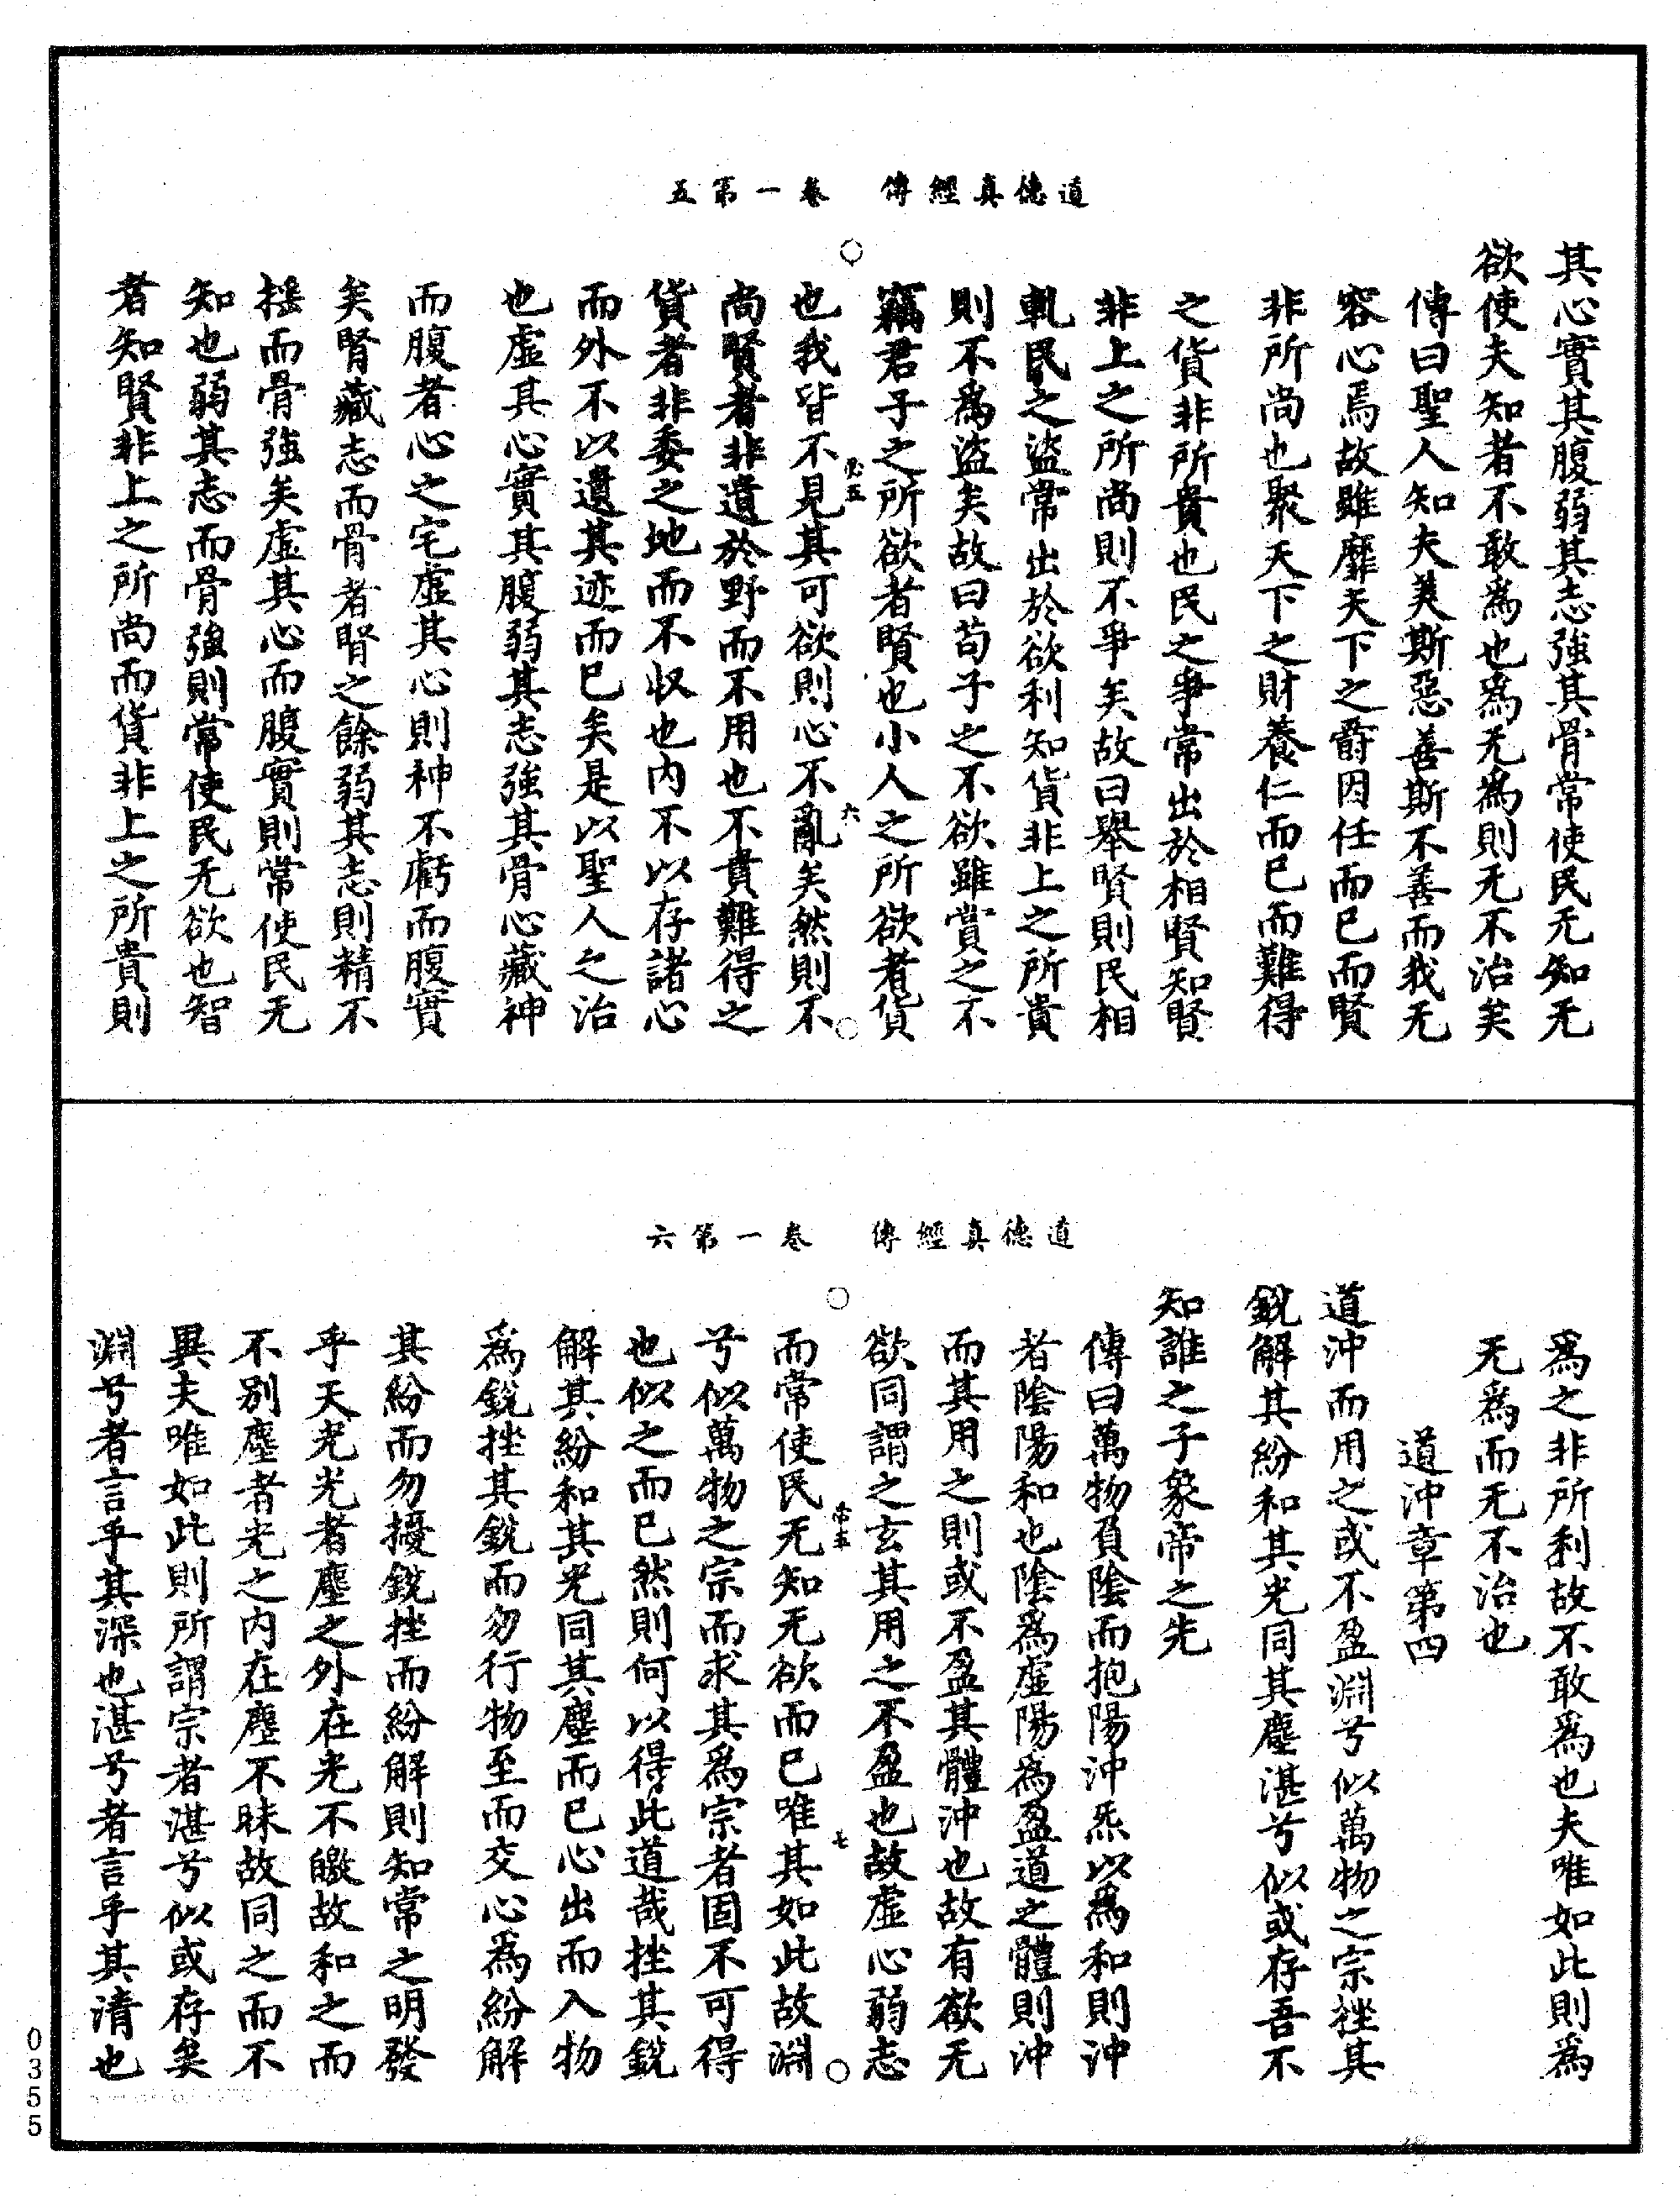 道德真經傳　卷一第五
其心實其腹弱其志強其骨常使民无知无
欲使夫知者不敢爲也爲无爲則无不治矣
傳曰聖人知夫美斯惡善斯不善而我无
容心焉故雖靡天下之爵因任而已而賢
非所尚也聚天下之財養仁而已而難得
之貨非所貴也民之爭常出於相賢知賢
非上之所尚則不爭矣故曰舉賢則民相
軋民之盜常出於欲利知貨非上之所貴
則不爲盜矣故曰苟子之不欲雖賞之不
竊君子之所欲者賢也小人之所欲者貨
六
也我皆不見其可欲則心不亂矣然則不
尚賢者非遺於野而不用也不貴難得之
貨者非委之地而不收也內不以存諸心
而外不以遺其迹而已矣是以聖人之治
也虛其心實其腹弱其志強其骨心藏神
而腹者心之宅虛其心則神不虧而腹實
矣腎藏志而骨者腎之餘弱其志則精不
搖而骨強矣虛其心而腹實則常使民无
知也弱其志而骨強則常使民无欲也智
者知賢非上之所尚而貨非上之所貴則
道德真經傳　卷一第六
爲之非所利故不敢爲也夫唯如此則爲
无爲而无不治也
道沖章第四
道沖而用之或不盈淵兮似萬物之宗挫其
銳解其紛和其光同其塵湛兮似或存吾不
知誰之子象帝之先
傳曰萬物負陰而抱陽沖炁以爲和則沖
者陰陽和也陰爲虛陽爲盈道之體則沖
而其用之則或不盈其體沖也故有欲无
欲同謂之玄其用之不盈也故虛心弱志
七
而常使民无知无欲而已唯其如此故淵
兮似萬物之宗而求其爲宗者固不可得
也似之而已然則何以得此道哉挫其銳
解其紛和其光同其塵而已心出而入物
爲銳挫其銳而勿行物至而交心爲紛解
其紛而勿擾銳挫而紛解則知常之明發
乎天光光者塵之外在光不皦故和之而
不別塵者光之內在塵不昧故同之而不
異夫唯如此則所謂宗者湛兮似或存矣
淵兮者言乎其深也湛兮者言乎其清也
0355